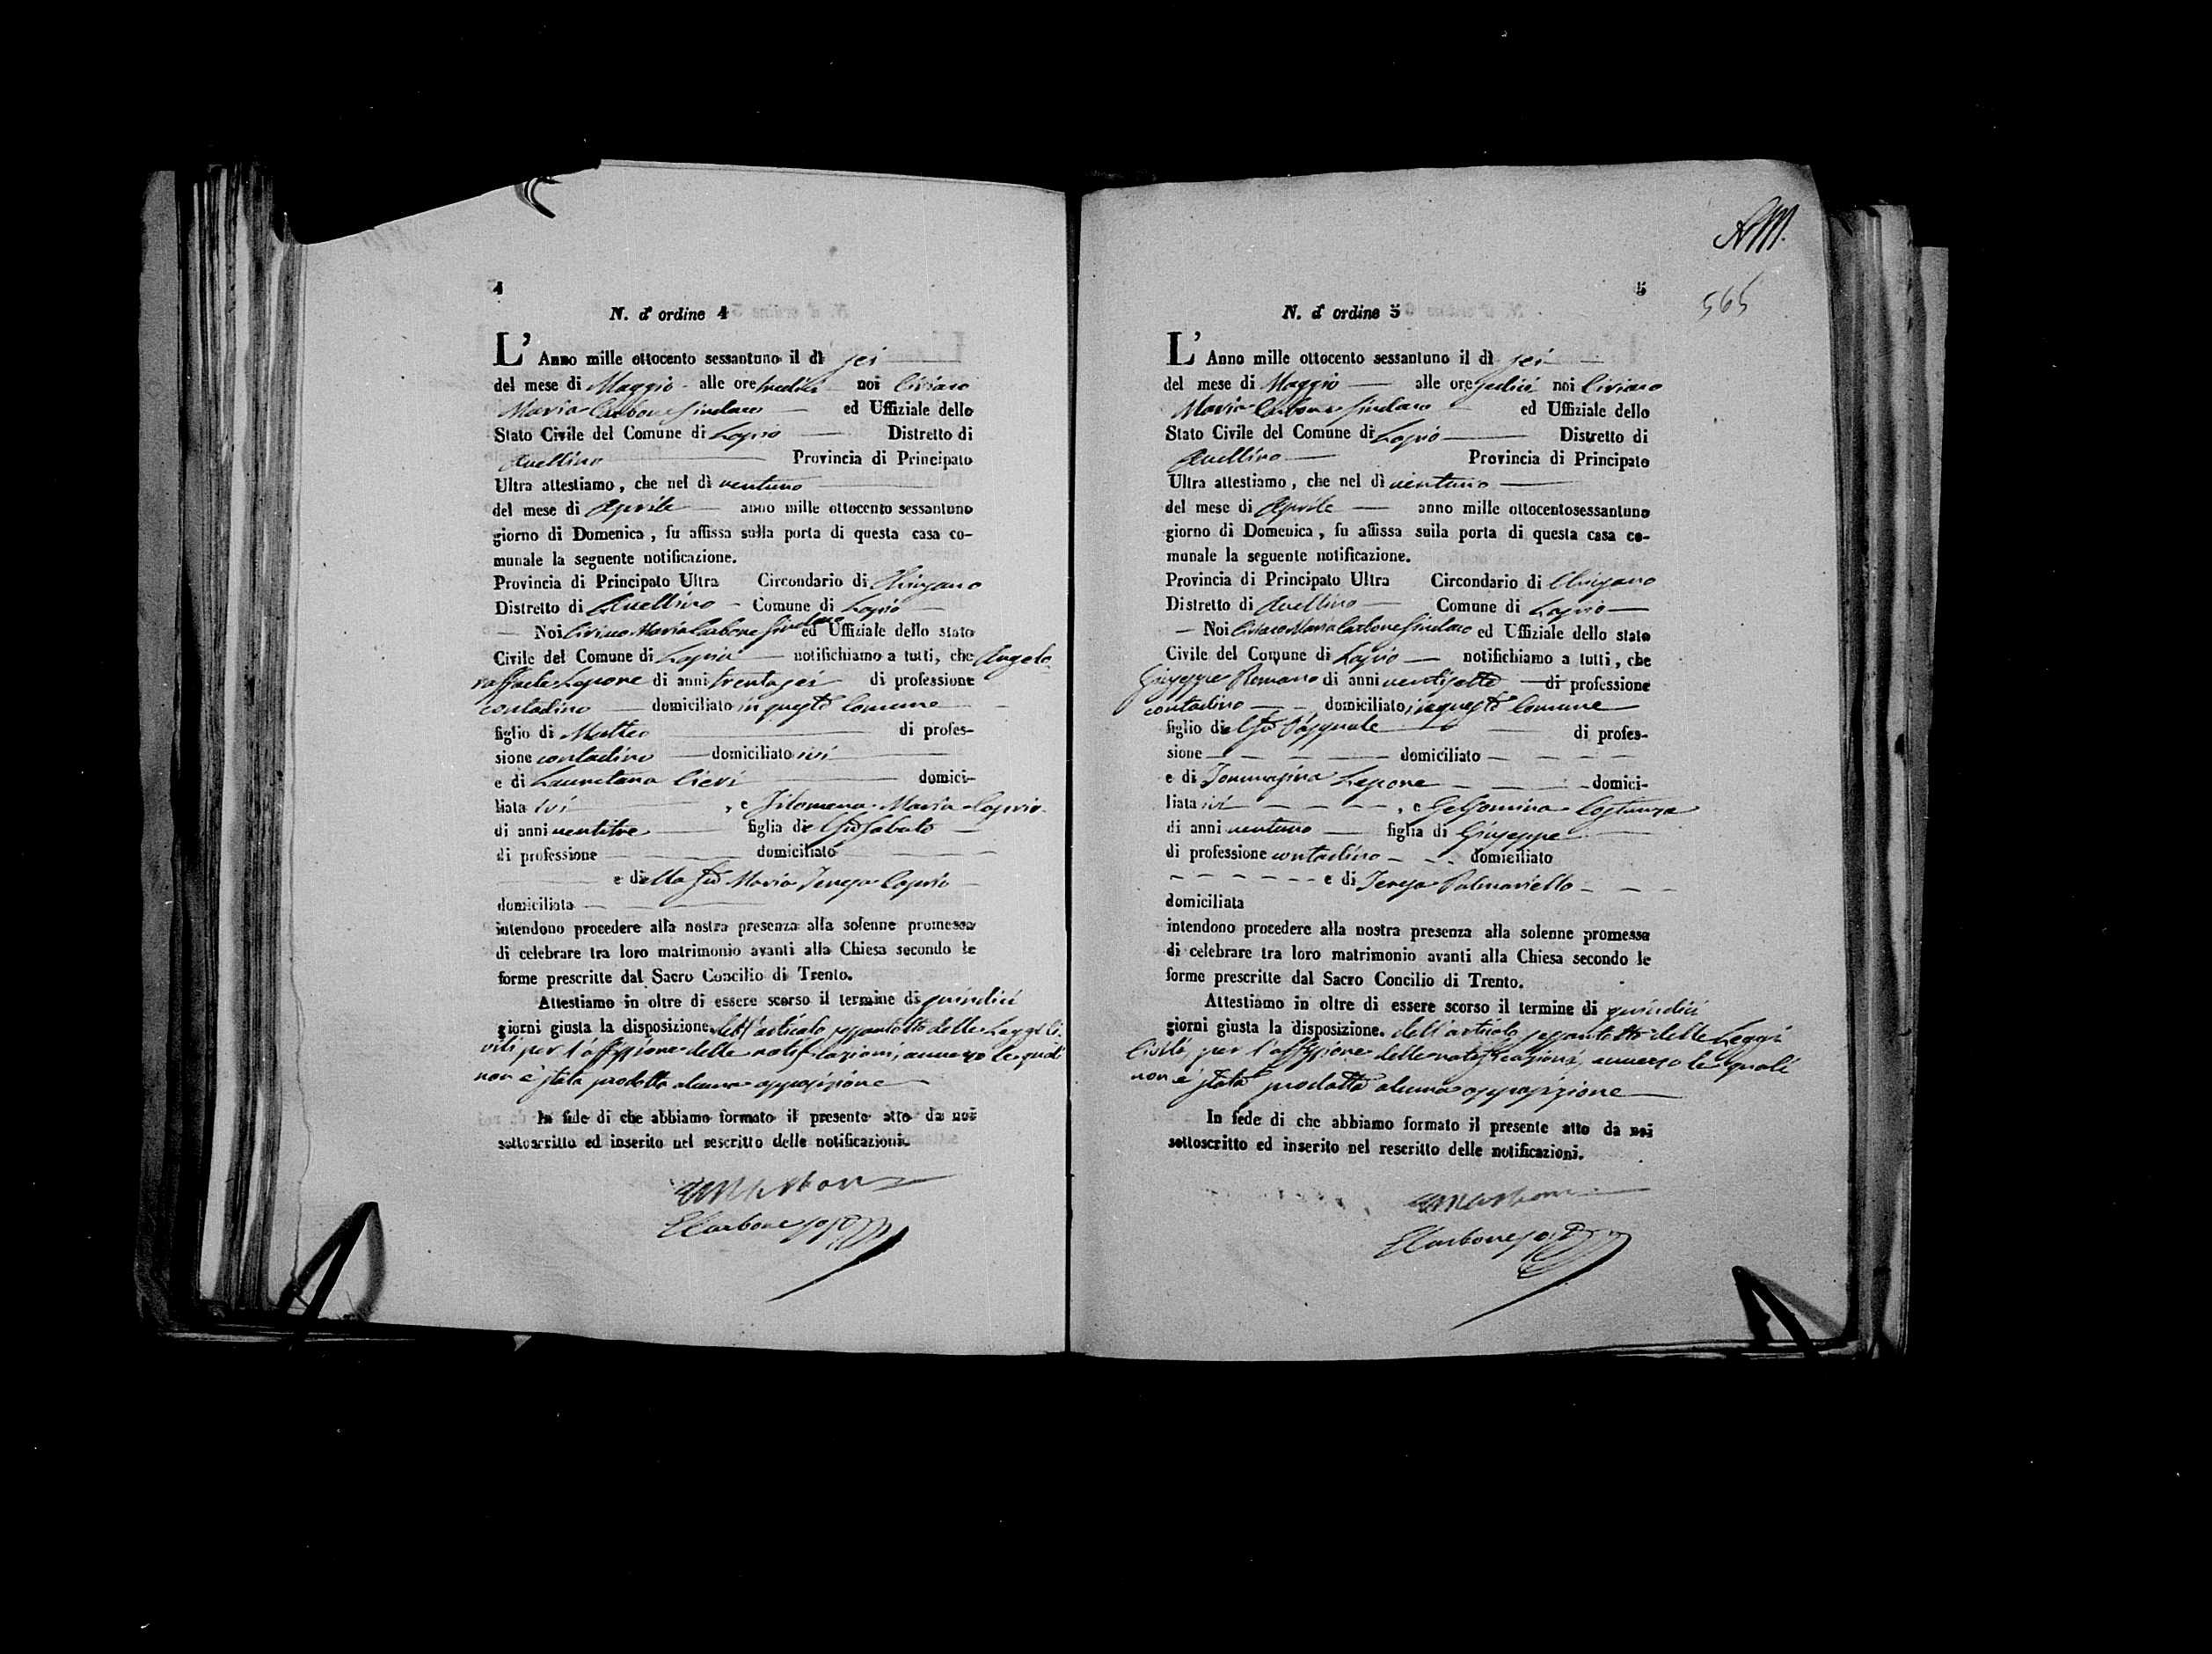 4
N. d' ordine 4
L' Anno mille ottocento sessantuno il dì sei
del mese di Maggio alle ore tredici noi Ciriaco
Maria Carbone Sindaco ed Uffiziale dello
Stato Civile del Comune di Lapio Distretto di
Avellino Provincia di Principato
Ultra attestiamo, che nel dì ventuno
del mese di Aprile anno mille ottocento sessantuno
giorno di Domenica, fu affissa sulla porta di questa casa co-
munale la seguente notificazione.
Provincia di Principato Ultra Circondario di Chiusano
Distretto di Avellino Comune di Lapio
Noi Ciriaco Maria Carbone Sindaco ed Uffiziale dello stato
Civile del Comune di Lapio notifichiamo a tutti, che Angelo
raffaele Lepore di anni trentasei di professione
contadino domiciliato in questo Comune
figlio di Matteo di profes-
sione contadino domiciliato ivi
e di Lauretana domici-
liata ivi, e Filomena Maria Caprio
di anni ventitre figlia del fu Sabato
di professione domiciliato
e della fu Maria Teresa Caprio
domiciliata
intendono procedere alla nostra presenza alla solenne promessa
di celebrare tra loro matrimonio avanti alla Chiesa secondo le
forme prescritte dal Sacro Concilio di Trento.
Attestiamo in oltre di essere scorso il termine di quindici
giorni giusta la disposizione. dell'articolo sessantotto delle Leggi Ci-
vili per l'affissione delle notificazioni, avverso le quali
non è stata prodotta alcuna opposizione
In fede di che abbiamo formato il presente atto da noi
sottoscritto ed inserito nel rescritto delle notificazioni.
CMCarbone
ECarbone
5
565
N. d' ordine 5
L' Anno mille ottocento sessantuno il dì sei
del mese di Maggio alle ore sedici noi Ciriaco
Maria Carbone Sindaco ed Uffiziale dello
Stato Civile del Comune di Lapio Distretto di
Avellino Provincia di Principato
Ultra attestiamo, che nel dì ventuno
del mese di Aprile anno mille ottocentosessantuno
giorno di Domenica, fu affissa sulla porta di questa casa co-
munale la seguente notificazione.
Provincia di Principato Ultra Circondario di Chiusano
Distretto di Avellino Comune di Lapio
Noi Ciriaco Maria Carbone Sindaco ed Uffiziale dello stato
Civile del Comune di Lapio notifichiamo a tutti, che
Giuseppe Romano di anni ventisette di professione
contadino domiciliato in questo Comune
figlio del fu Pasquale di profes-
sione domiciliato
e di Tommasina Lepore domici-
liata ivi, e Gelsomina Costanza
di anni ventuno figlia di Giuseppe
di professione contadino domiciliato
e di Teresa Palmariello
domiciliata
intendono procedere alla nostra presenza alla solenne promessa
di celebrare tra loro matrimonio avanti alla Chiesa secondo le
forme prescritte dal Sacro Concilio di Trento.
Attestiamo in oltre di essere scorso il termine di quindici
giorni giusta la disposizione. dell'articolo sessantotto delle Leggi
Civili, per l'affissione delle notificazioni, avverso le quali
non è stata prodotta alcuna opposizione
In fede di che abbiamo formato il presente atto da noi
sottoscritto ed inserito nel rescritto delle notificazioni.
CMCarbone
ECarbone